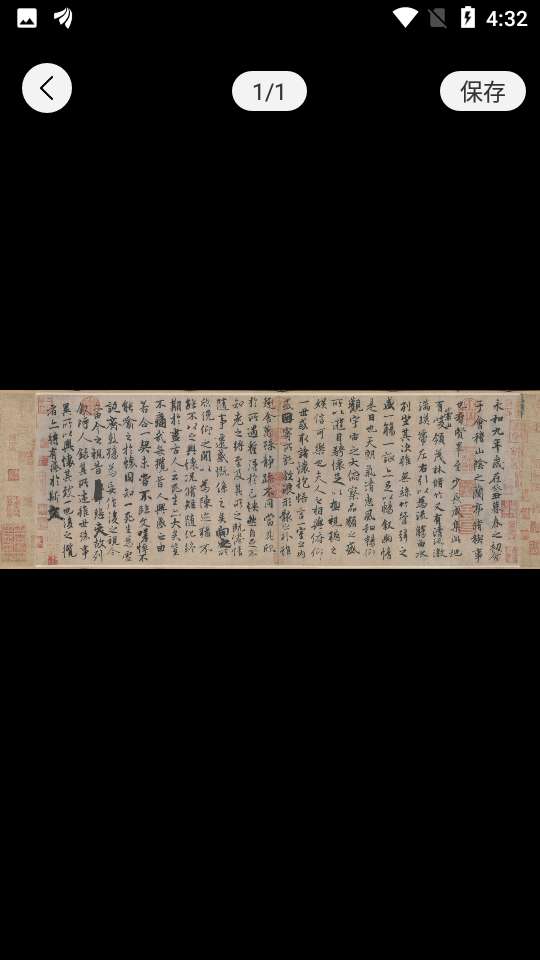 4:32
1/1
保存
永和九年歲在癸丑暮春之初會
于會稽山陰之蘭亭脩稧事
也羣賢畢至少長咸集此地
有崇山峻領茂林脩竹又有清流激
湍暎帶左右引以為流觴曲水
列坐其次雖無絲竹管弦之
盛一觴一詠亦足以暢敘幽情
是日也天朗氣清惠風和暢仰
觀宇宙之大俯察品類之盛
所以遊目騁懷足以極視聽之
娛信可樂也夫人之相與俯仰
一世或取諸懷抱悟言一室之內
或因寄所託放浪形骸之外雖
趣舍萬殊靜躁不同當其欣
於所遇蹔得於己怏然自足不
知老之將至及其所之既惓情
隨事遷感慨係之矣向之所
欣俛仰之間以為陳迹猶不
能不以之興懷況脩短隨化終
期於盡古人云死生亦大矣豈
不痛哉每攬昔人興感之由
若合一契未嘗不臨文嗟悼不
能喻之於懷固知一死生為虛
誕齊彭殤為妄作後之視今
亦由今之視昔悲夫故列
敘時人錄其所述雖世殊事
異所以興懷其致一也後之攬
者亦將有感於斯文